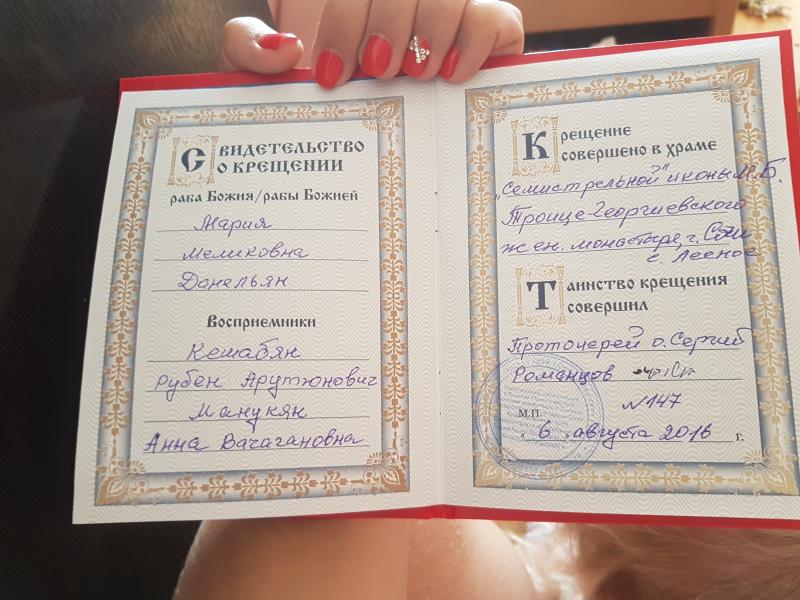 Свидетельство
о крещении
раба Божия/рабы Божией
Мария
Меликовна
Данельян
Восприемники
Кешабян
Рубен Арутюнович
Манукян
Анна Вачагановна
Крещение
совершено в храме
"Семистрельной" иконы М.Б.
Троице-Георгиевского
жен. монастыря, г. Сочи
с. Лесное
Таинство крещения
совершил
Протоиерей о. Сергий
Романцов
№147
М.П.
"6" августа 2016 г.